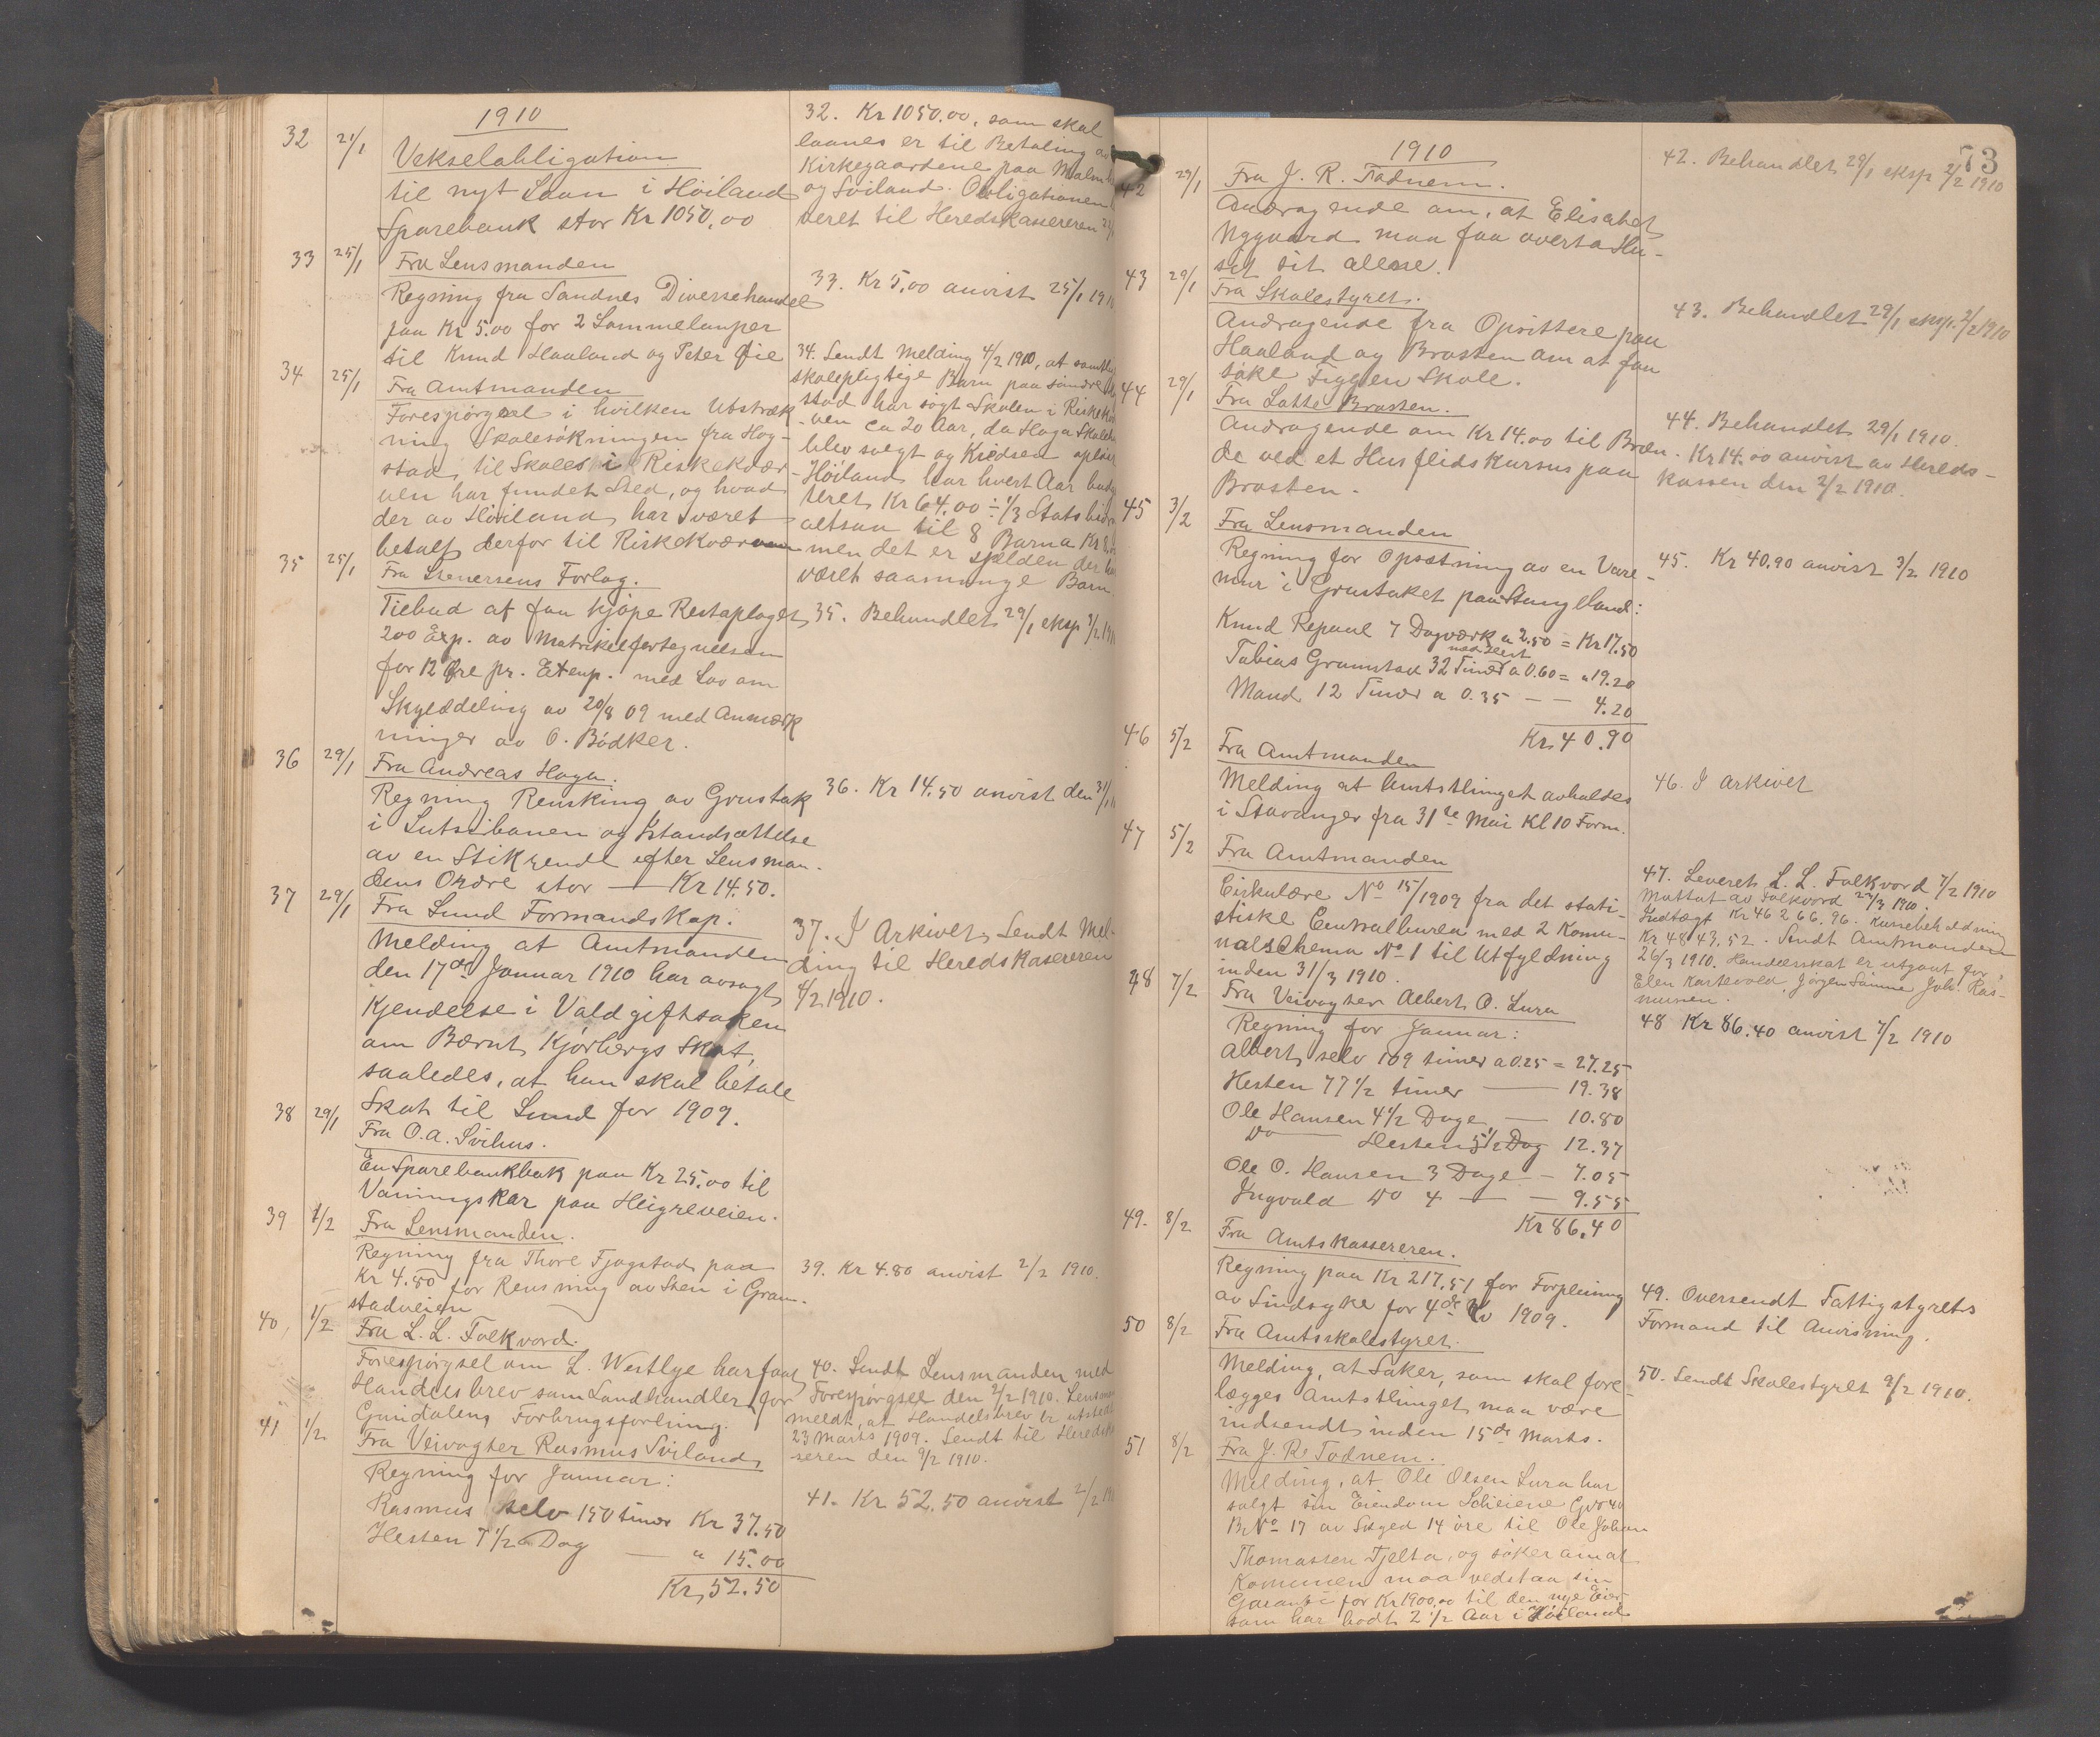 1910
32 21/1 Vekselobligation
til nyt Laan i Höiland
Sparebank stor Kr 1050,00
33 25/1 Fra Lensmanden
Regning fra Sandnes Diversehandel
paa Kr 5.00 for 2 Lommelamper
til Knud Haaland og Peter Øie
34 25/1 Fra Amtmanden
Forespörgsel i hvilken Utstræk-
ning Skolesökningen fra Hog-
stad til Skolen i Riskekvær-
ven har fundet Sted, og hvad
der av Höiland har været
betalt derfor til Riskekværven
35 25/1 Fra Stenersens Forlag.
Tilbud at faa kjöpe Restoplaget
200 Exp. av Matrikelfortegnelsen
for 12 Øre pr. Exemp. med Lov om
Skylddeling av 20/8 09 med Anmærk
ninger av O. Bödker.
36 29/1 Fra Andreas Hoga.
Regning Rensking av Grustak
i Lutsibanen og Istandsættelse
av en Stikrende efter Lensman-
dens Ordre stor — Kr 14.50.
37 29/1 Fra Lund Formandskap.
Melding at Amtmanden
den 17de Januar 1910 har avsagt
Kjendelse i Voldgiftsaken
om Bernt Kjörbergs Skat,
saaledes, at han skal betale
Skat til Lund for 1909.
38 29/1 Fra O. A. Svihus.
En Sparebankbok paa Kr 25.00 til
Vanningskar paa Heigreveien.
39 1/2 Fra Lensmanden.
Regning fra Thore Fjogstad paa
Kr 4.80 for Rensning av Sten i Gram-
stadveien
40, 1/2 Fra L. L. Folkvord.
Forespörgsel om L. Westlye har faat
Handelsbrev som Landhandler for
Gjuidalens Forbrugsforening.
41 1/2 Fra Veivogter Rasmus Sviland
Regning for Januar:
Rasmus selv 150 timer Kr 37.50
Hesten 7 1/2 Dag — " 15.00
Kr 52.50
32. Kr 1050.00, som skal
laanes er til Betaling av
Kirkegaardene paa Malm
og Sviland. Obligationen
veret til Heredskassereren
33. Kr 5,00 anvist 25/1 19
34. Sendt Melding 4/2 1910, at samtl
skolepligtige Barn paa söndre
stad har sögt Skolen i Riskekvær
ven ca 20 Aar, da Hoga Skole
blev solgt og Kredsen oplöst
- Höiland har hvert Aar bud
teret Kr 64.00 ÷ 1/3 Statsbidr
altsaa til 8 Barn a Kr 8.
men det er sjelden der
været saamange Barn
35. Behandlet 29/1 eksp 2/2 19
36. Kr 14.50 anvist den 31/1
37. I Arkivet, Sendt Mel-
ding til Heredskasereren
4/2 1910.
39. Kr 4.80 anvist 2/2 1910.
40. Sendt Lensmanden med
Forespörgsel den 2/2 1910. Lensm
meldt, at Handelsbrev er utstedt
23 Marts 1909. Sendt til Heredsk
seren den 9/2 1910.
41. Kr 52.50 anvist 2/2
73
1910
42 29/1 Fra J. R. Todnem.
Andragende om, at Elisabet
Nygaard maa faa overta Hu-
set sit alene.
43 29/1 Fra Skolestyret.
Andragende fra Opsittere paa
Haaland og Brasten om at faa
söke Figgen Skole.
44 29/1 Fra Lotte Brasten.
Andragende om Kr 14.00 til Bræn-
de ved et Husflidskursus paa
Brasten.
45 3/2 Fra Lensmanden
Regning for Opsætning av en Vare-
mur i Grustaket paa Stangeland:
Knud Repaal 7 Dagverk a 2.50 = Kr 17.50
med Hest
Tobias Gramstad 32 Timer a 0.60 = " 19.20
Mand 12 Timer a 0.35 — — 4.20
Kr 40.90
46 5/2 Fra Amtmanden
Melding at Amtstinget avholdes
i Stavanger fra 31te Mai Kl 10 Form.
47 5/2 Fra Amtmanden
Cirkulære No 15/1909 fra det stati-
stiske Centralburea med 2 Komu-
nalschema No 1 til Utfyldning
inden 31/3 1910.
48 7/2 Fra Veivogter Albert O. Lura
Regning for Januar:
Albert selv 109 timer a 0.25 = 27.25
Hesten 77 1/2 timer — 19.38
Ole Hansen 4 1/2 Dage — 10.80
Do — Hesten 5 1/2 Dag 12.37
Ole O. Hansen 3 Dage — 7.05
Ingvald Do 4 — — 9.55
Kr 86.40
49. 8/2 Fra Amtskassereren.
Regning paa Kr 217,51 for Forpleining
av Sindsyke for 4de Kv 1909.
50 8/2 Fra Amtsskolestyret.
Melding, at Saker, som skal fore-
lægges Amtstinget maa være
indsendt inden 15de Marts.
51 8/2 Fra J. R. Todnem.
Melding, at Ole Olsen Lura har
solgt sin Eiendom Scheiene G No 40
B No 17 av Skyld 14 öre til Ole Johan
Thomassen Tjelta, og söker om at
Komunen maa vedstaa sin
Garanti for Kr 1900,00 til den nye Eier
som har bodt 2 1/2 Aar i Höiland
42. Behandlet 29/1 eksp 2/2 1910
43. Behandlet 29/1 eksp. 2/2 1910
44. Behandlet 29/1 1910.
Kr 14.00 anvist av Hereds-
kassen den 2/2 1910.
45. Kr 40.90 anvist 3/2 1910
46. I Arkivet
47. Leveret L. L. Folkvord 7/2 1910
Mottat av Folkvord 23/3 1910.
Indtægt Kr 46266.96. Kassebeholdning
Kr 4843.52. Sendt Amtmanden
26/3 1910. Handelsskat er utgaat for,
Elen Kartevold, Jörgen Sömme Joh. Ras-
mussen.
48 Kr 86.40 anvist 7/2 1910
49. Oversendt Fattigstyrets
Formand til Anvisning.
50. Sendt Skolestyret 9/2 1910.